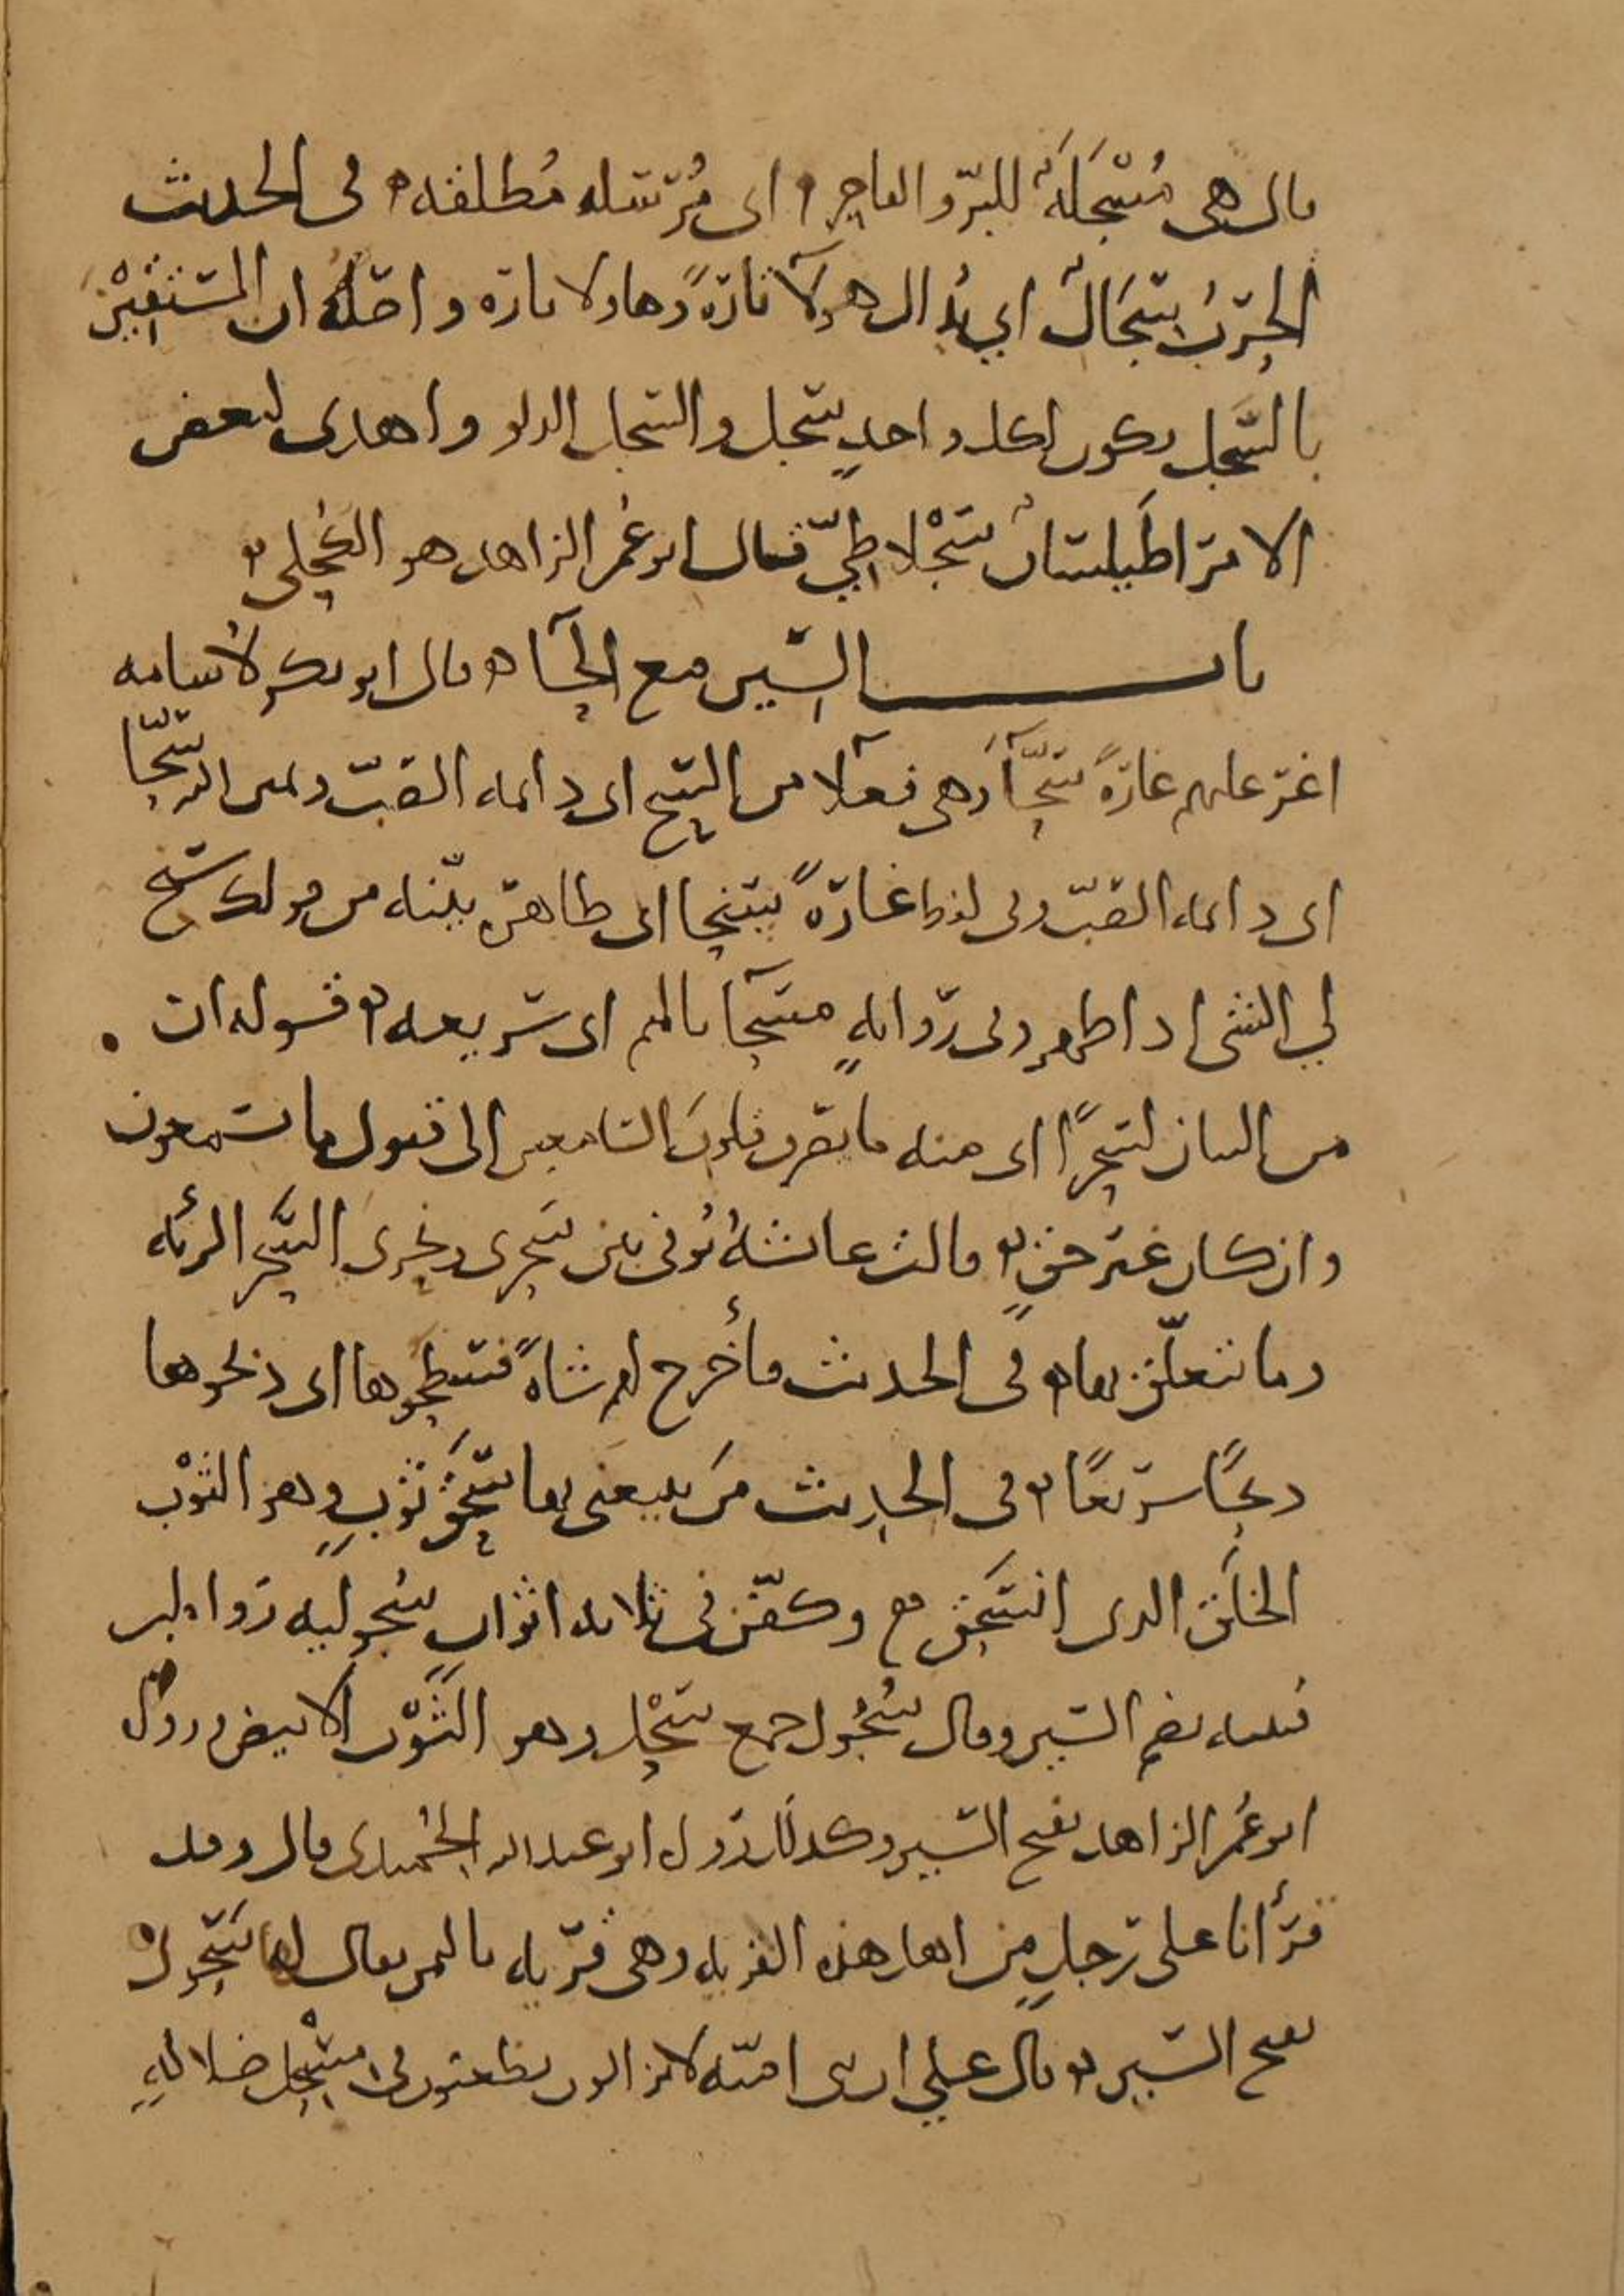 قال هي مُسْجَلَةٌ للبرّ والفاجر ه اى مُرْسَله مُطلقه ه فى الحديث
الحَرْبُ سِجَالٌ اي يُدال هولآ تارةً وهاولا تاره واصلُه ان المُستَقِيْنَ
بالسَّجل يكون لكل واحدٍ سجل والسجل الدلو واهدى لبعض
الامرا طَيلسانٌ سَجْلاطِيّ قال ابو عُمر الزاهد هو الكُحلى ه
باب السين مع الحآ ه قال ابو بكر لاُسامه
اغر عليهم غارةً سَحَّآ وهى فعلآ من السح اى دائمه الصّب ويمين الله سحّا
اى دائمه الصّب وفى لفظ غارةً سنحا اى ظاهرة بيّنه من قولك سنح
لي الشى اذا ظهر وفى روايةٍ مسحآ بالميم اى سريعه ه قوله ان
من البيان لسحرًا اى منه ما يصرف قلوبَ السامعين الى قبول ما يسمعون
وان كان غير حقٍ ه قالت عائشةُ تُوفى بين سَحرى ونحرى السَّحر الرئه
وما يتعلّق بها ه فى الحديث فأُخرج لهم شاةً فسحطوها اى ذبحوها
ذبحًا سريعًا ه فى الحديث مَن يبيعنى بها سَحْقَ ثوبٍ وهو الثَوْب
الخلَق الذى انسَحق مع وكفّن فى ثلاثه اثوابٍ سُحوليه رواه ابن
قتيبه بضم السين وقال سُحُول جمع سَحْل وهو الثَّوْب الابيض ورواه
ابو عُمر الزاهد بفتح السين وكذلك رواه ابو عبد الله الحُميدى قال وقد
قرأنا على رجلٍ من اهل هذه القريه وهى قريه باليمن يقال لها سَحول
بفتح السين ه قال على ان بنى اميّه لا يزالون يطعنون فى مِسْحل ضلالةٍ